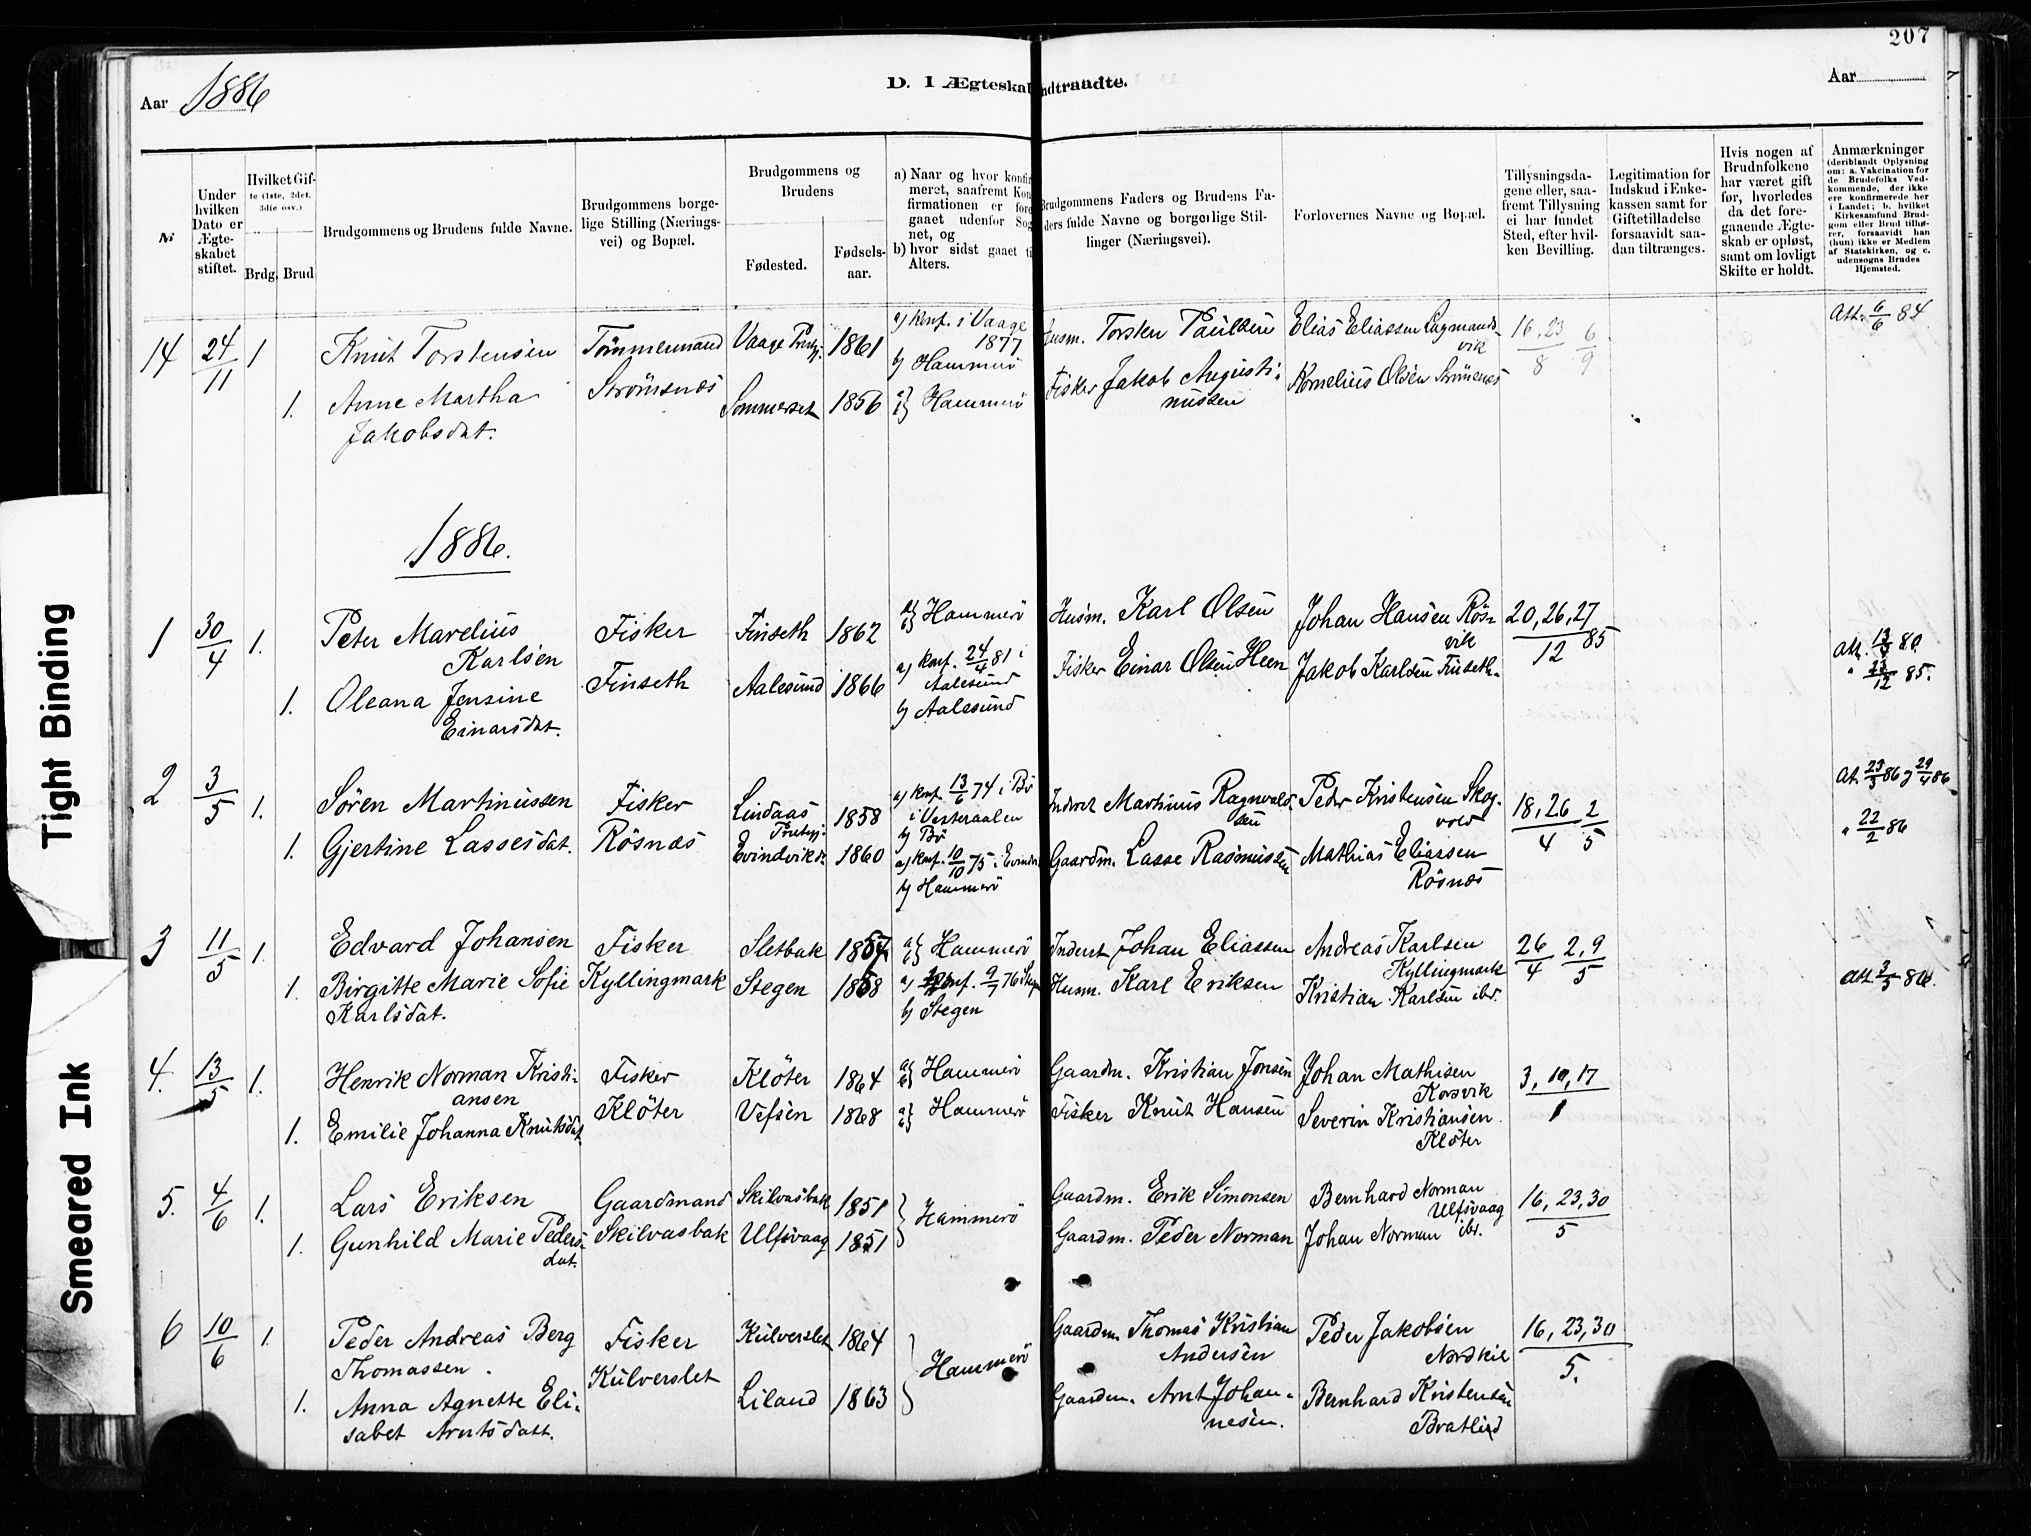 207
Aar 1886
D. I Ægteskab indtraadte.
Aar
№
Under hvilken Dato er Ægteskabet stiftet.
Hvilket Gifte (1ste, 2det, 3die osv.)
Brdg. Brud.
Brudgommens og Brudens fulde Navne.
Brudgommens borgelige Stilling (Næringsvei) og Bopæl.
Brudgommens og Brudens
Fødested.
Fødselsaar.
Brudgommens Faders og Brudens Faders fulde Navne og borgerlige Stillinger (Næringsvei).
Forlovernes Navne og Bopæl.
Tillysningsdagene eller, saafremt Tillysning ei har fundet Sted, efter hvilken Bevilling.
Legitimation for Indskud i Enkekassen samt for Giftetilladelse forsaavidt saadan tiltrænges.
Hvis nogen af Brudnfolkene har været gift før, hvorledes da det foregaaende Ægteskab er opløst, samt om lovligt Skifte er holdt.
Anmærkninger
(deriblandt Oplysning om: a. Vakcination for de Brudefolks Vedkommende, der ikke ere konfirmerede her i Landet; b. hvilket Kirkesamfund Brudgom eller Brud tilhører, forsaavidt han (hun) ikke er Medlem af Statskirken, og c. udensogns Brudes Hjemsted.
14 24/11 1 Knut Torstensen Tømmermand Vaage Prstgj. 1861 a) konf. i Vaage 1877 b) Hammerø Husm. Torsten Paulsen Elias Eliassen Lagmandsvik 16, 23/8 6/9 Att. 6/6 84
1. Anne Martha Jakobsdat. Strømsnæs Sommerset 1856 a) b) Hammerø Fisker Jakob Augustinussen Kornelius Olsen Strømsnæs
1886.
1 30/4 1. Peter Marelius Karlsen Fisker Finseth 1862 a) b) Hammerø Husm. Karl Olsen Johan Hansen Røsvik 20, 26, 27/12 85 Att. 80
1. Oleana Jensine Einarsdat. Finseth Aalesund 1866 a) konf. 24/4 81 i Aalesund b) Aalesund Fisker Einar Olsen Heen Jakob Karlsen Finseth. 85.
2 3/5 1. Søren Martinussen Fisker Lindaas Prstgj. 1858 a) konf. 13/6 74 i Bø i Vesteraalen b) Bø Inderst Martinus Ragnvaldsen Peder Kristensen Skogvold 18, 26/4 2/5 At. 23/3 86 29/4 86
1. Gjertine Lassesdat. Røsnæs Evindvik 1860 a) konf. 10/10 75 i Evindv. b) Hammerø Gaardm. Lasse Rasmussen Mathias Eliassen Røsnæs " 22/2 86
3 11/5 1. Edvard Johansen Fisker Sletbak 1857 a) b) Hammerø Inderst Johan Eliassen Andreas Karlsen Kyllingmark 26/4 2, 9/5
1. Birgitte Marie Sofie Karlsdat. Kyllingmark Stegen 1858 a) konf. 9/7 76 Stegen b) Stegen Husm. Karl Eriksen Kristian Karlsen ibd. Att. 3/5 86.
4. 13/5 1. Henrik Norman Kristiansen Fisker Kløter 1864 a) b) Hammerø Gaardm. Kristian Jonsen Johan Mathisen Korsvik 3, 10, 17/1
1. Emilie Johanna Knutsdat. Kløter Vefsen 1868 a) b) Hammerø Fisker Knut Hansen Severin Kristiansen Kløter
5. 4/6 1. Lars Eriksen Gaardmand Skilvasbak 1851 Hammerø Gaardm. Erik Simonsen Bernhard Norman Ulfsvaag 16, 23, 30/5
1. Gunhild Marie Pedersdat. Skilvasbak Ulfsvaag 1851 Gaardm. Peder Norman Johan Norman ibd.
6 10/6 1. Peder Andreas Berg Thomassen. Fisker Kulverslet 1864 Hammerø Gaardm. Thomas Kristian Andersen Peder Jakobsen Nordkil 16, 23, 30/5.
1. Anna Agnette Elisabet Arntsdatt. Kulverslet Liland 1863 Gaardm. Arnt Johannesen. Bernhard Kristensen Bratlid
Tight Binding
Smeared Ink